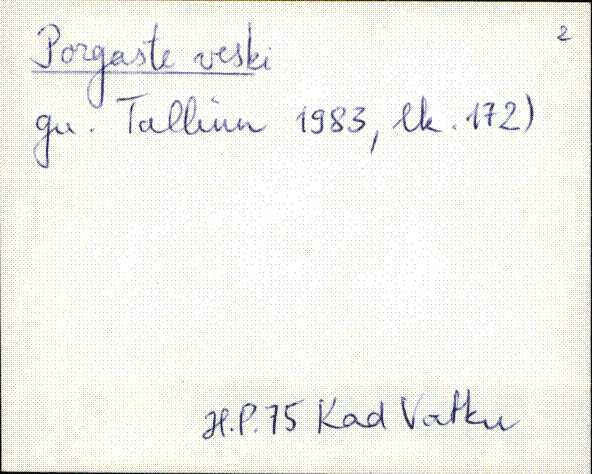 2
Porgaste veski
gu. Tallinn 1983, lk. 172)
H.P. 75 Kad Vatku